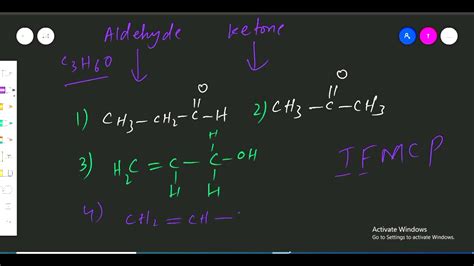 Aldehyde ketone
C3H6O
O O
1) CH3-CH2-C-H 2) CH3-C-CH3
H
3) H2C=C-C-OH
H H
IFMCP
4) CH2=CH-
Activate Windows
Go to Settings to activate Windows.